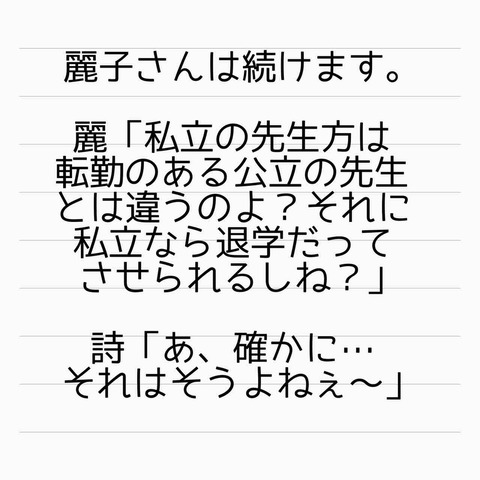 麗子さんは続けます。
麗「私立の先生方は
転勤のある公立の先生
とは違うのよ？それに
私立なら退学だって
させられるしね？」
詩「あ、確かに…
それはそうよねぇ〜」